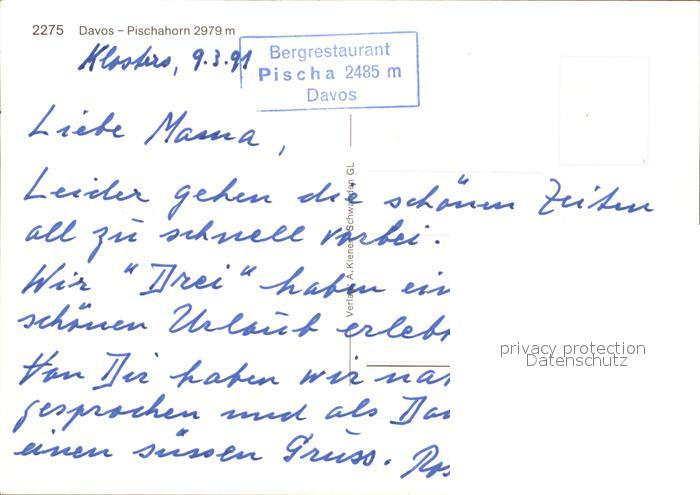 2275 Davos – Pischahorn 2979 m
Klosters, 9.3.91
Bergrestaurant
Pischa 2485 m
Davos
Liebe Mama,
Leider gehen die schönen Zeiten
all zu schnell vorbei.
Wir "Drei" haben ein
schönen Urlaub erleb
Von Dir haben wir na
gesprochen und als Da
einen süssen Gruss. Ros
Verlag A. Kiener Schwanden GL
privacy protection
Datenschutz